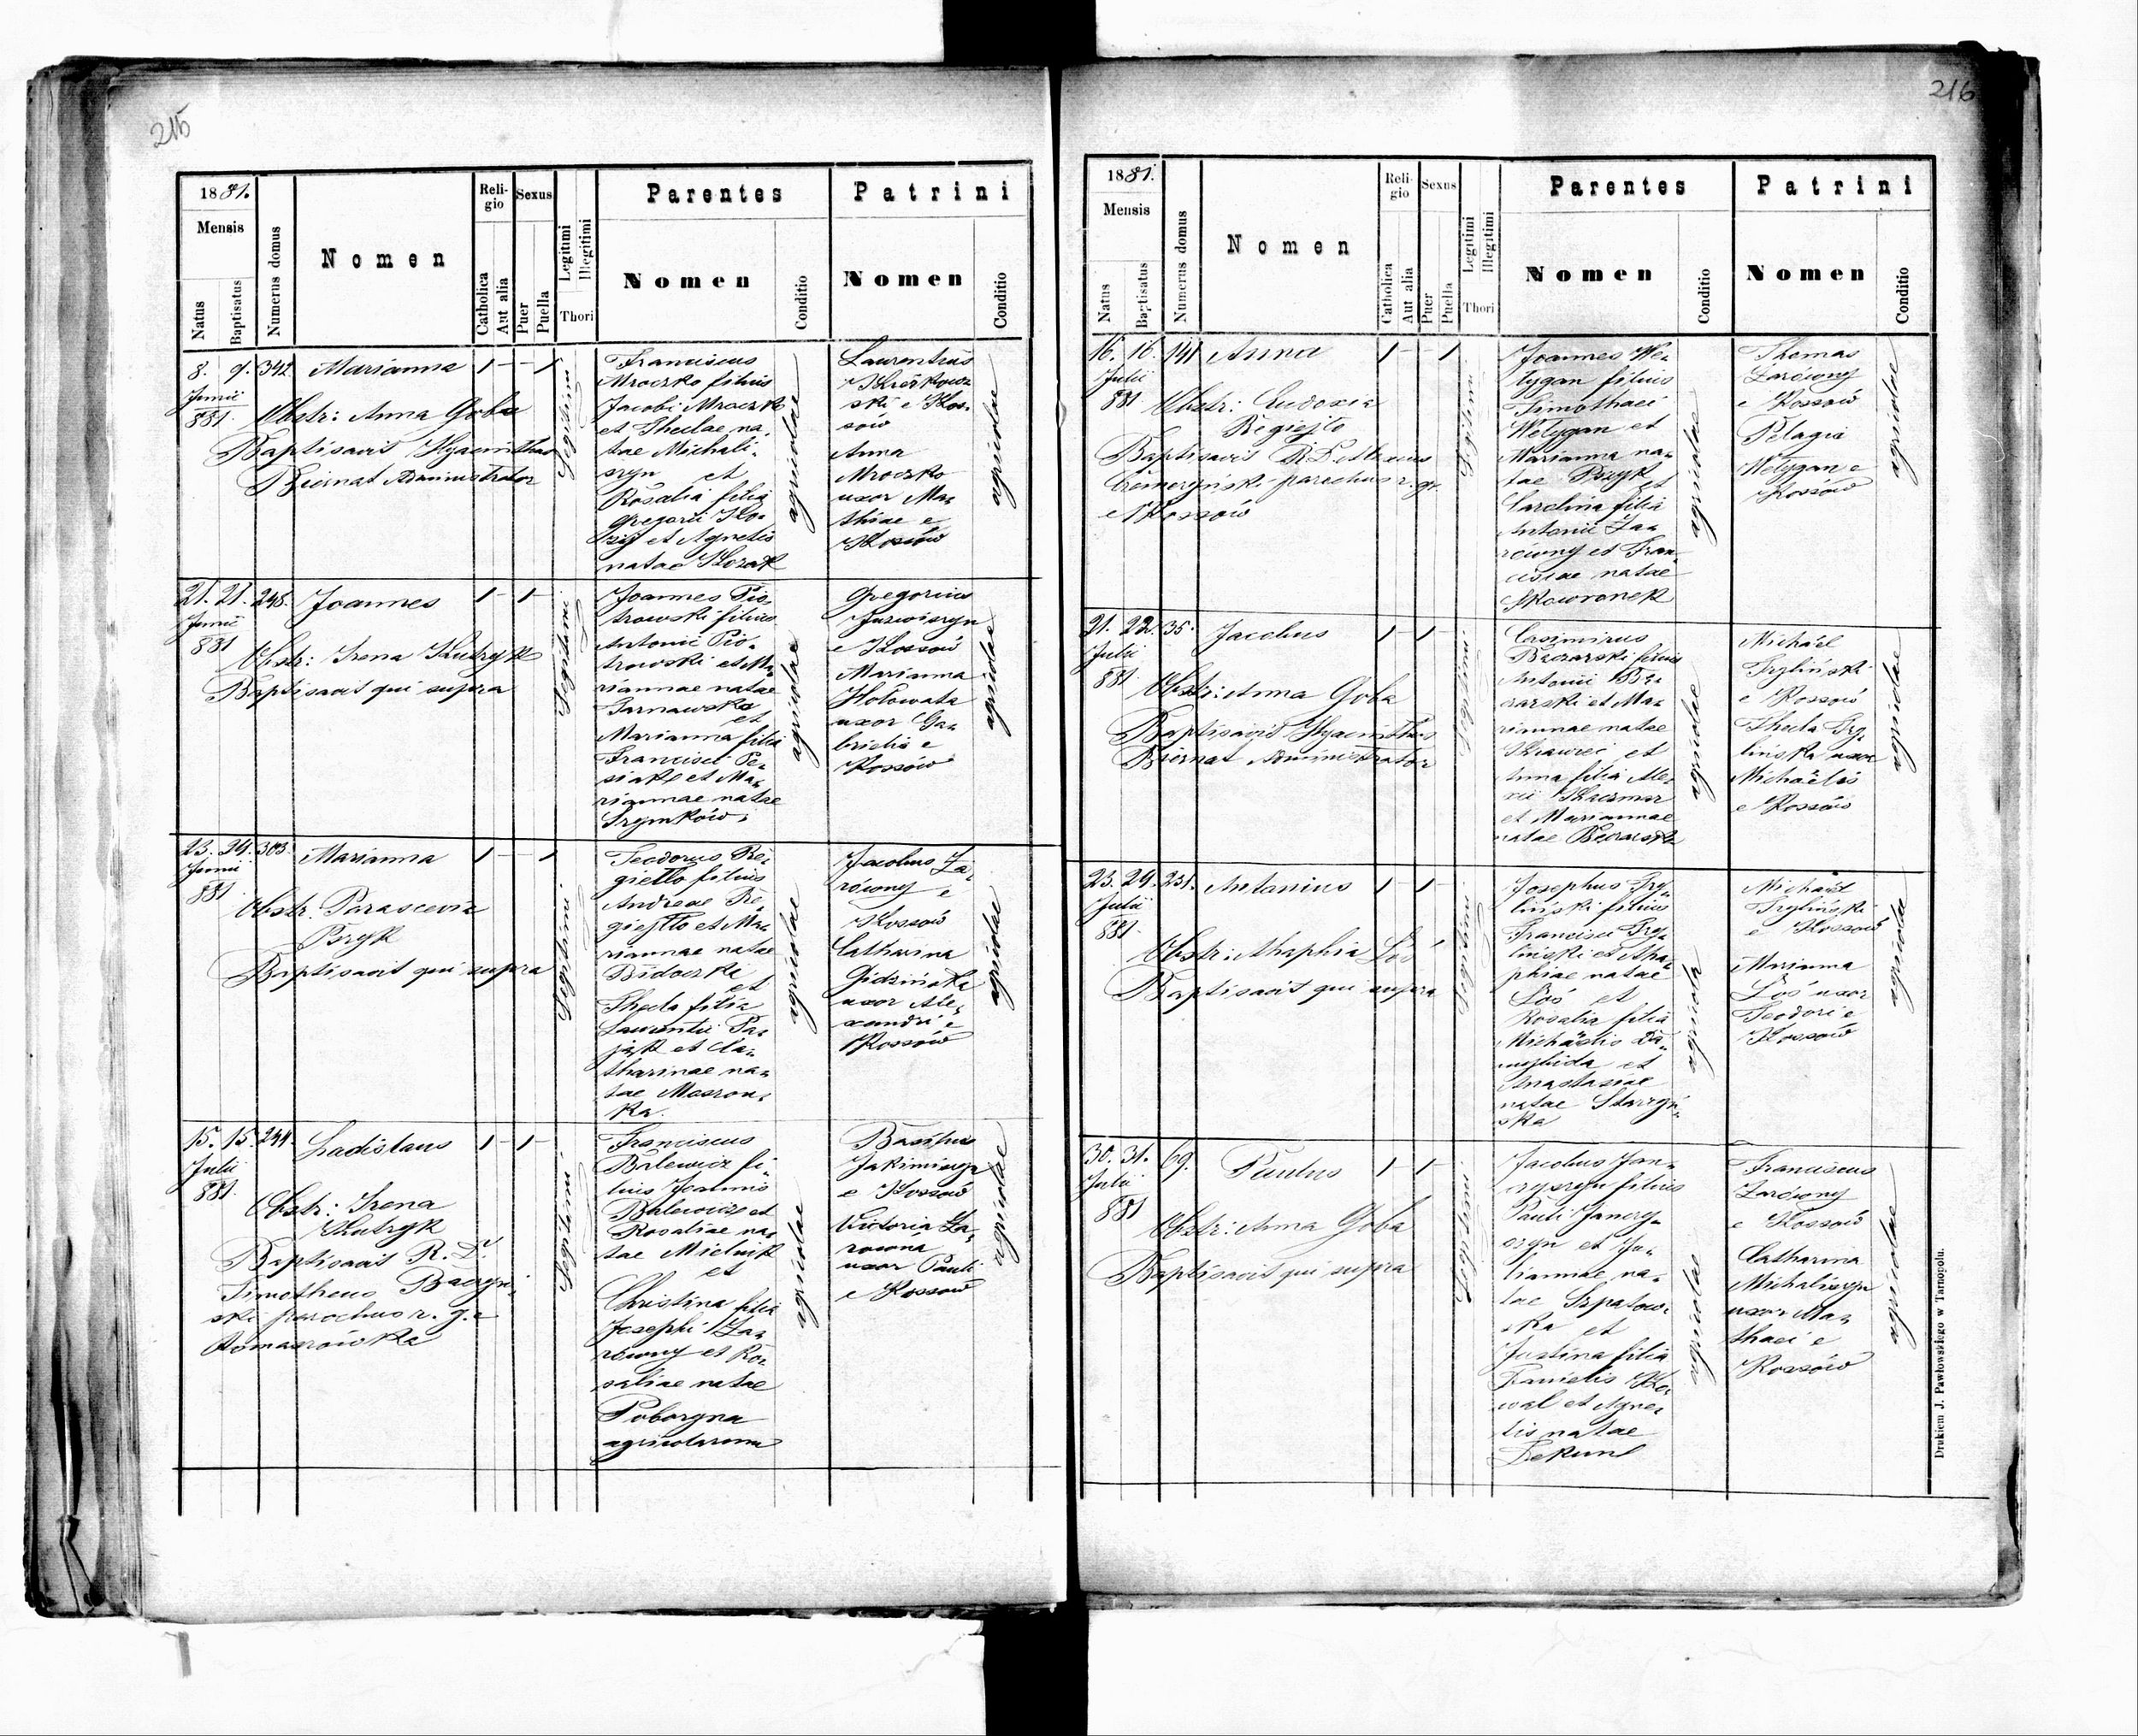 215
1881.
Mensis
Natus
Baptisatus
Numerus domus
Nomen
Religio
Catholica
Aut alia
Sexus
Puer
Puella
Legitimi
Illegitimi
Thori
Parentes
Nomen
Conditio
Patrini
Nomen
Conditio
8. 9. 342 Marianna 1 — — 1
Junii
881.
Obstr: Anna Goba
Baptisavit Hyacinthus
Biernat Administrator
Legitimi
Franciscus
Mroczko filius
Jacobi Mroczko
et Theclae na-
tae Michali-
szyn et
Rosalia filia
Gregorii
et Agnetis
natae
agricolae
Laurentius
ski e Kos-
sów
Anna
Mroczko
uxor Ma-
thiae e
Kossów
agricolae
21. 21. 245. Joannes 1 — 1 —
Junii
881
Obstr: Irena Kutryk
Baptisavit qui supra
Legitimi
Joannes Pio-
trowski filius
Antonii Pio-
trowski et Ma-
riannae natae
Tarnawska
et
Marianna filia
Francisci Pe-
siak et Ma-
riannae natae
Szymków.
agricolae
Gregorius
Jurwiszyn
e Kossów
Marianna
Hołowata
uxor Ga-
brielis e
Kossów
agricolae
23. 24. 303. Marianna 1 — — 1
Junii
881
Obstr. Parascevia
Bzyk
Baptisavit qui supra
Legitimi
Teodorus Re-
giełło filius
Andreae Re-
giejło et Ma-
riannae natae
et
Thecla filia
Laurentii Pa-
jąk et Ca-
tharinae na-
tae Mazron-
ka.
agricolae
Jacobus Za-
równy e
Kossów
Catharina
Gidzińska
uxor Ale-
xandri e
Kossów
agricolae
15. 15. 244. Ladislaus 1 — 1 —
Julii
881.
Obstr: Irena
Kutryk
Baptisavit R. D.
Timotheus Baczyń-
ski parochus r. g. e
Romaszówka
Legitimi
Franciscus
Bilewicz fi-
lius Joannis
Bilewicz et
Rosaliae na-
tae Mielnik
et
Christina filia
Josephi Za-
równy et Ro-
saliae natae
Poborzna
agricolarum
agricolae
Basilius
Jakimiszyn
e Kossów
Victoria Za-
rowna
uxor Pauli
e Kossów
agricolae
216
1881.
Mensis
Natus
Baptisatus
Numerus domus
Nomen
Religio
Catholica
Aut alia
Sexus
Puer
Puella
Legitimi
Illegitimi
Thori
Parentes
Nomen
Conditio
Patrini
Nomen
Conditio
16. 16. 141 Anna 1 — — 1
Julii
881
Obstr: Eudoxia
Regiejło
Baptisavit R. D.
parochus r. gr.
e Kossów
Legitimi
Joannes We-
lygan filius
Timothaei
Welygan et
Marianna na-
tae Bzyk
et
Carolina filia
Antonii Za-
równy et Fran-
ciscae natae
Skowronek
agricolae
Thomas
Zarówny
e Kossów
Pelagia
Welygan e
Kossów
agricolae
21. 22. 35. Jacobus 1 — 1 —
Julii
881
Obstr: Anna Goba
Baptisavit Hyacinthus
Biernat Administrator
Legitimi
Casimirus
filius
Antonii
et Ma-
riannae natae
Krawiec et
Anna filia Ale-
xii Kaczmar
et Mariannae
natae
agricolae
Michaël
Tryliński
e Kossów
Thecla Try-
lińska uxor
Michaëlis
e Kossów
agricolae
23. 24. 231. Antonius 1 — 1 —
Julii
881.
Obstr: Anaphia Łoś
Baptisavit qui supra
Legitimi
Josephus Try-
liński filius
Francisci Try-
liński et Ana-
phiae natae
Łoś et
Rosalia filia
Michaëlis
et
Anastasiae
natae Starzyń-
ska
agricolae
Michaël
Tryliński
e Kossów
Marianna
Łoś uxor
Teodori e
Kossów
agricolae
30. 31. 69. Paulus 1 — 1 —
Julii
881
Obstr: Anna Goba
Baptisavit qui supra
Legitimi
Jacobus Jan-
czyszyn filius
Pauli Janczy-
szyn et Ju-
liannae na-
tae Szpatow-
ska et
Justina filia
Danielis Ko-
wal et Agne-
tis natae
Dekunl
agricolae
Franciscus
Zarówny
e Kossów
Catharina
Michaliszyn
uxor Ma-
thaei e
Kossów
agricolae
Drukiem J. Pawłowskiego w Tarnopolu.